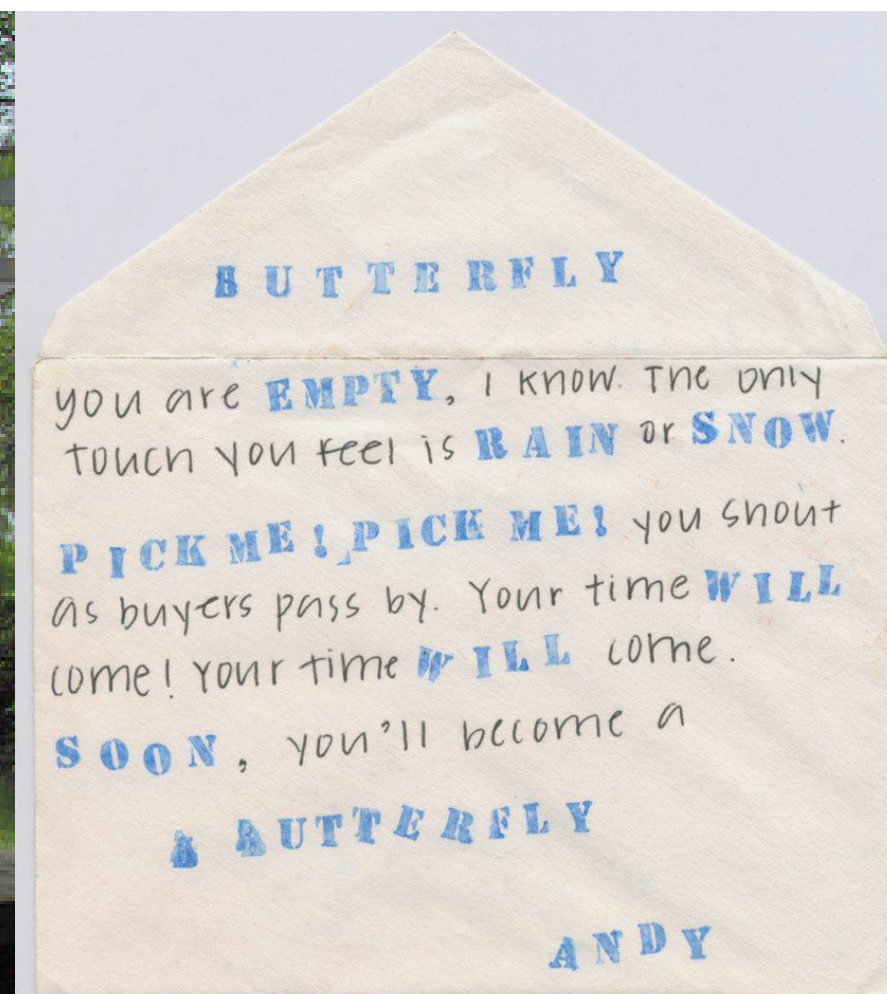 BUTTERFLY
you are EMPTY, I know. The only
touch you feel is RAIN or SNOW.
PICK ME! PICK ME! you shout
as buyers pass by. Your time WILL
come! Your time WILL come.
SOON, you'll become a
BUTTERFLY
ANDY